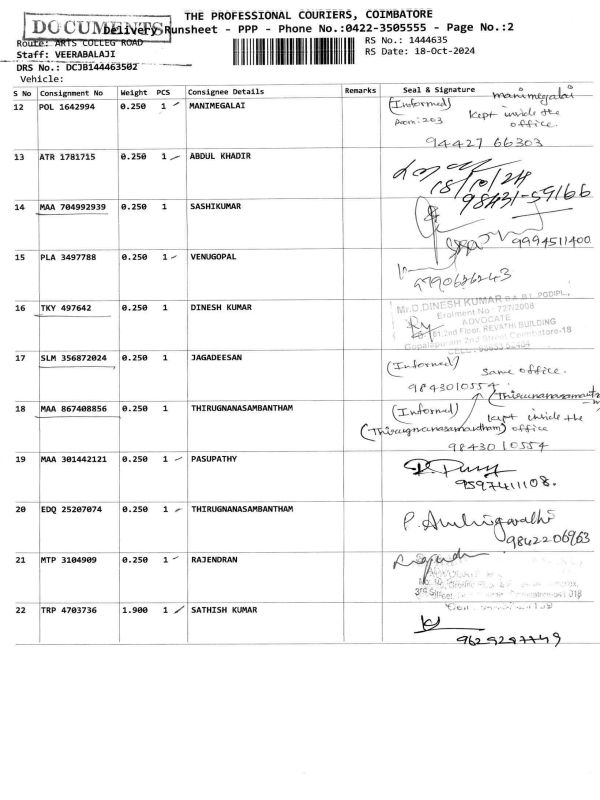 THE PROFESSIONAL COURIERS, COIMBATORE
DOCUMENTS
Delivery Runsheet - PPP - Phone No.:0422-3505555 - Page No.:2
Route: ARTS COLLEG ROAD
RS No.: 1444635
Staff: VEERABALAJI
RS Date: 18-Oct-2024
DRS No.: DCJB144463502
Vehicle:
S No Consignment No Weight PCS Consignee Details Remarks Seal & Signature
manimegalai
12 POL 1642994 0.250 1 MANIMEGALAI (Informed) kept inside the
Room: 203 office.
94427 66303
13 ATR 1781715 0.250 1 ABDUL KHADIR
18/10/24
98431-59166
14 MAA 704992939 0.250 1 SASHIKUMAR
9994511400
15 PLA 3497788 0.250 1 VENUGOPAL
9790626243
16 TKY 497642 0.250 1 DINESH KUMAR Mr.D.DINESH KUMAR B.A.B.L. PGDIPL.,
Erolment No : 727/2008
ADVOCATE
81,2nd Floor, REVATHI BUILDING
Gopalapuram 2nd Street Coimbatore-18
17 SLM 356872024 0.250 1 JAGADEESAN (Informed) same office.
9843010554
18 MAA 867408856 0.250 1 THIRUGNANASAMBANTHAM (Informed) kept inside the
(Thirugnanasamandham) office
9843010554
19 MAA 301442121 0.250 1 PASUPATHY
9597411108.
20 EDQ 25207074 0.250 1 THIRUGNANASAMBANTHAM
9842206963
21 MTP 3104909 0.250 1 RAJENDRAN
22 TRP 4703736 1.900 1 SATHISH KUMAR
9629297749